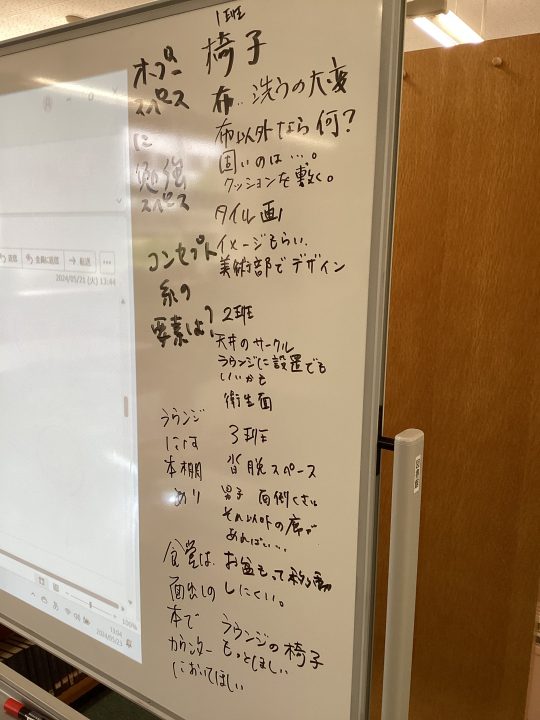 オープー
スペース
に
勉強
スペース
コンセプト
系の
要素は?
ラウンジ
には
本棚
あり
食堂は、
面出しの
本で
カウンター
においてほしい
1班
椅子
布:洗うの大変
布以外なら何?
固いのは…。
クッションを敷く。
タイル画
イメージもらい、
美術部でデザイン
2班
天井のサークル
ラウンジに設置でも
いいかも
衛生面
3班
皆脱スペース
男子 面倒くさい
それ以外の席が
あればい…
お盆もって移動
しにくい。
ラウンジの椅子
もっとほしい
返信
全員に返信
転送
2024/05/21 (火) 13:44
100%
13:04
2024/05/23
図書館